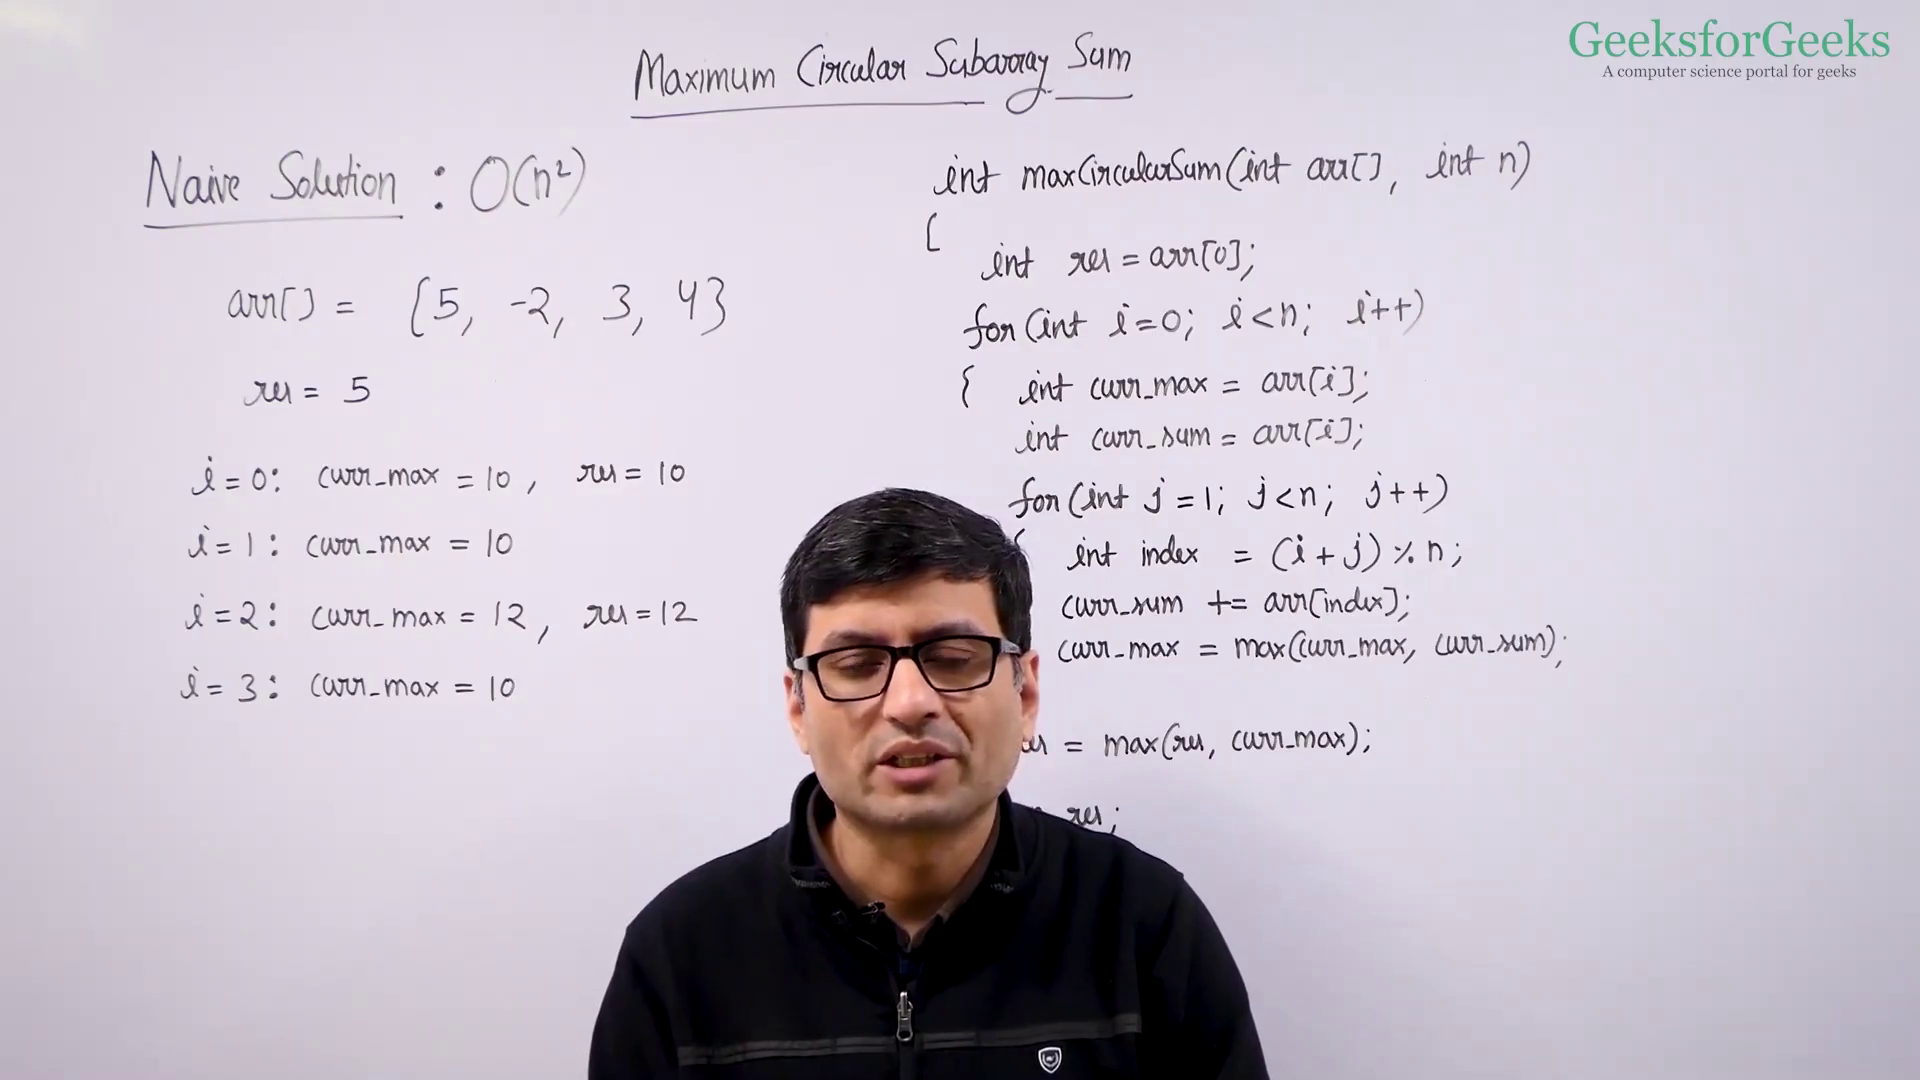 GeeksforGeeks
A computer science portal for geeks
Maximum Circular Subarray Sum
Naive Solution : O(n²)
arr[] = {5, -2, 3, 4}
res = 5
i = 0: curr_max = 10, res = 10
i = 1: curr_max = 10
i = 2: curr_max = 12, res = 12
i = 3: curr_max = 10
int maxCircularSum(int arr[], int n)
{
int res = arr[0];
for (int i=0; i<n; i++)
{ int curr_max = arr[i];
int curr_sum = arr[i];
for (int j=1; j<n; j++)
{ int index = (i+j) % n;
curr_sum += arr[index];
curr_max = max(curr_max, curr_sum);
= max(res, curr_max);
res;